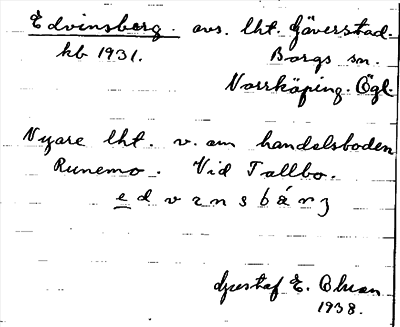 Edvinsberg. avs. lht. Gäverstad.
kb 1931. Borgs sn.
Norrköping. Ögl.
Nyare lht. v. om handelsboden
Runemo. Vid Tallbo.
edvinsbárʒ
Gustaf E. Ohlson
1938.